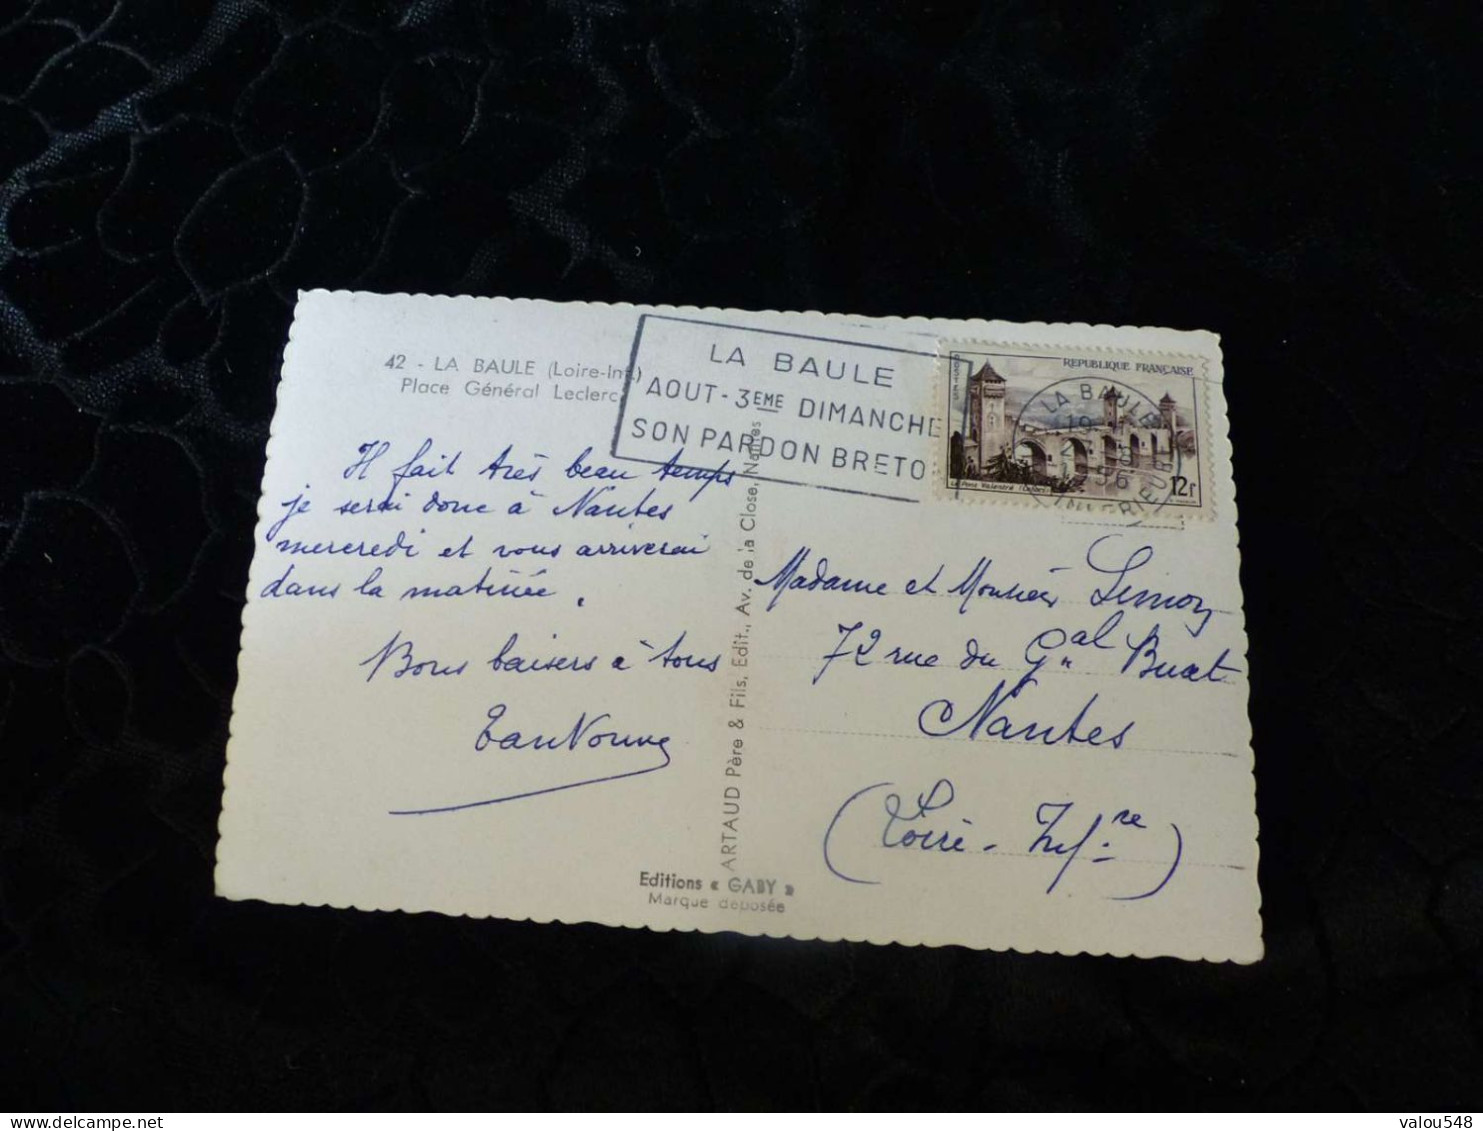 42 - LA BAULE (Loire-Inf.)
Place Général Leclerc
LA BAULE
AOUT - 3EME DIMANCHE
SON PARDON BRETO
REPUBLIQUE FRANÇAISE
Le Pont Valentré (Cahors)
12f
LA BAULE
19
2
8
56
Il fait très beau temps
je serai donc à Nantes
mercredi et vous arriverai
dans la matinée.
Bons baisers à tous
Madame et Monsieur Simon
72 rue du Gal Buat
Nantes
(Loire-Infre)
ARTAUD Père & Fils, Edit., Av. de la Close, Nantes
Editions « GABY »
Marque déposée
valou548